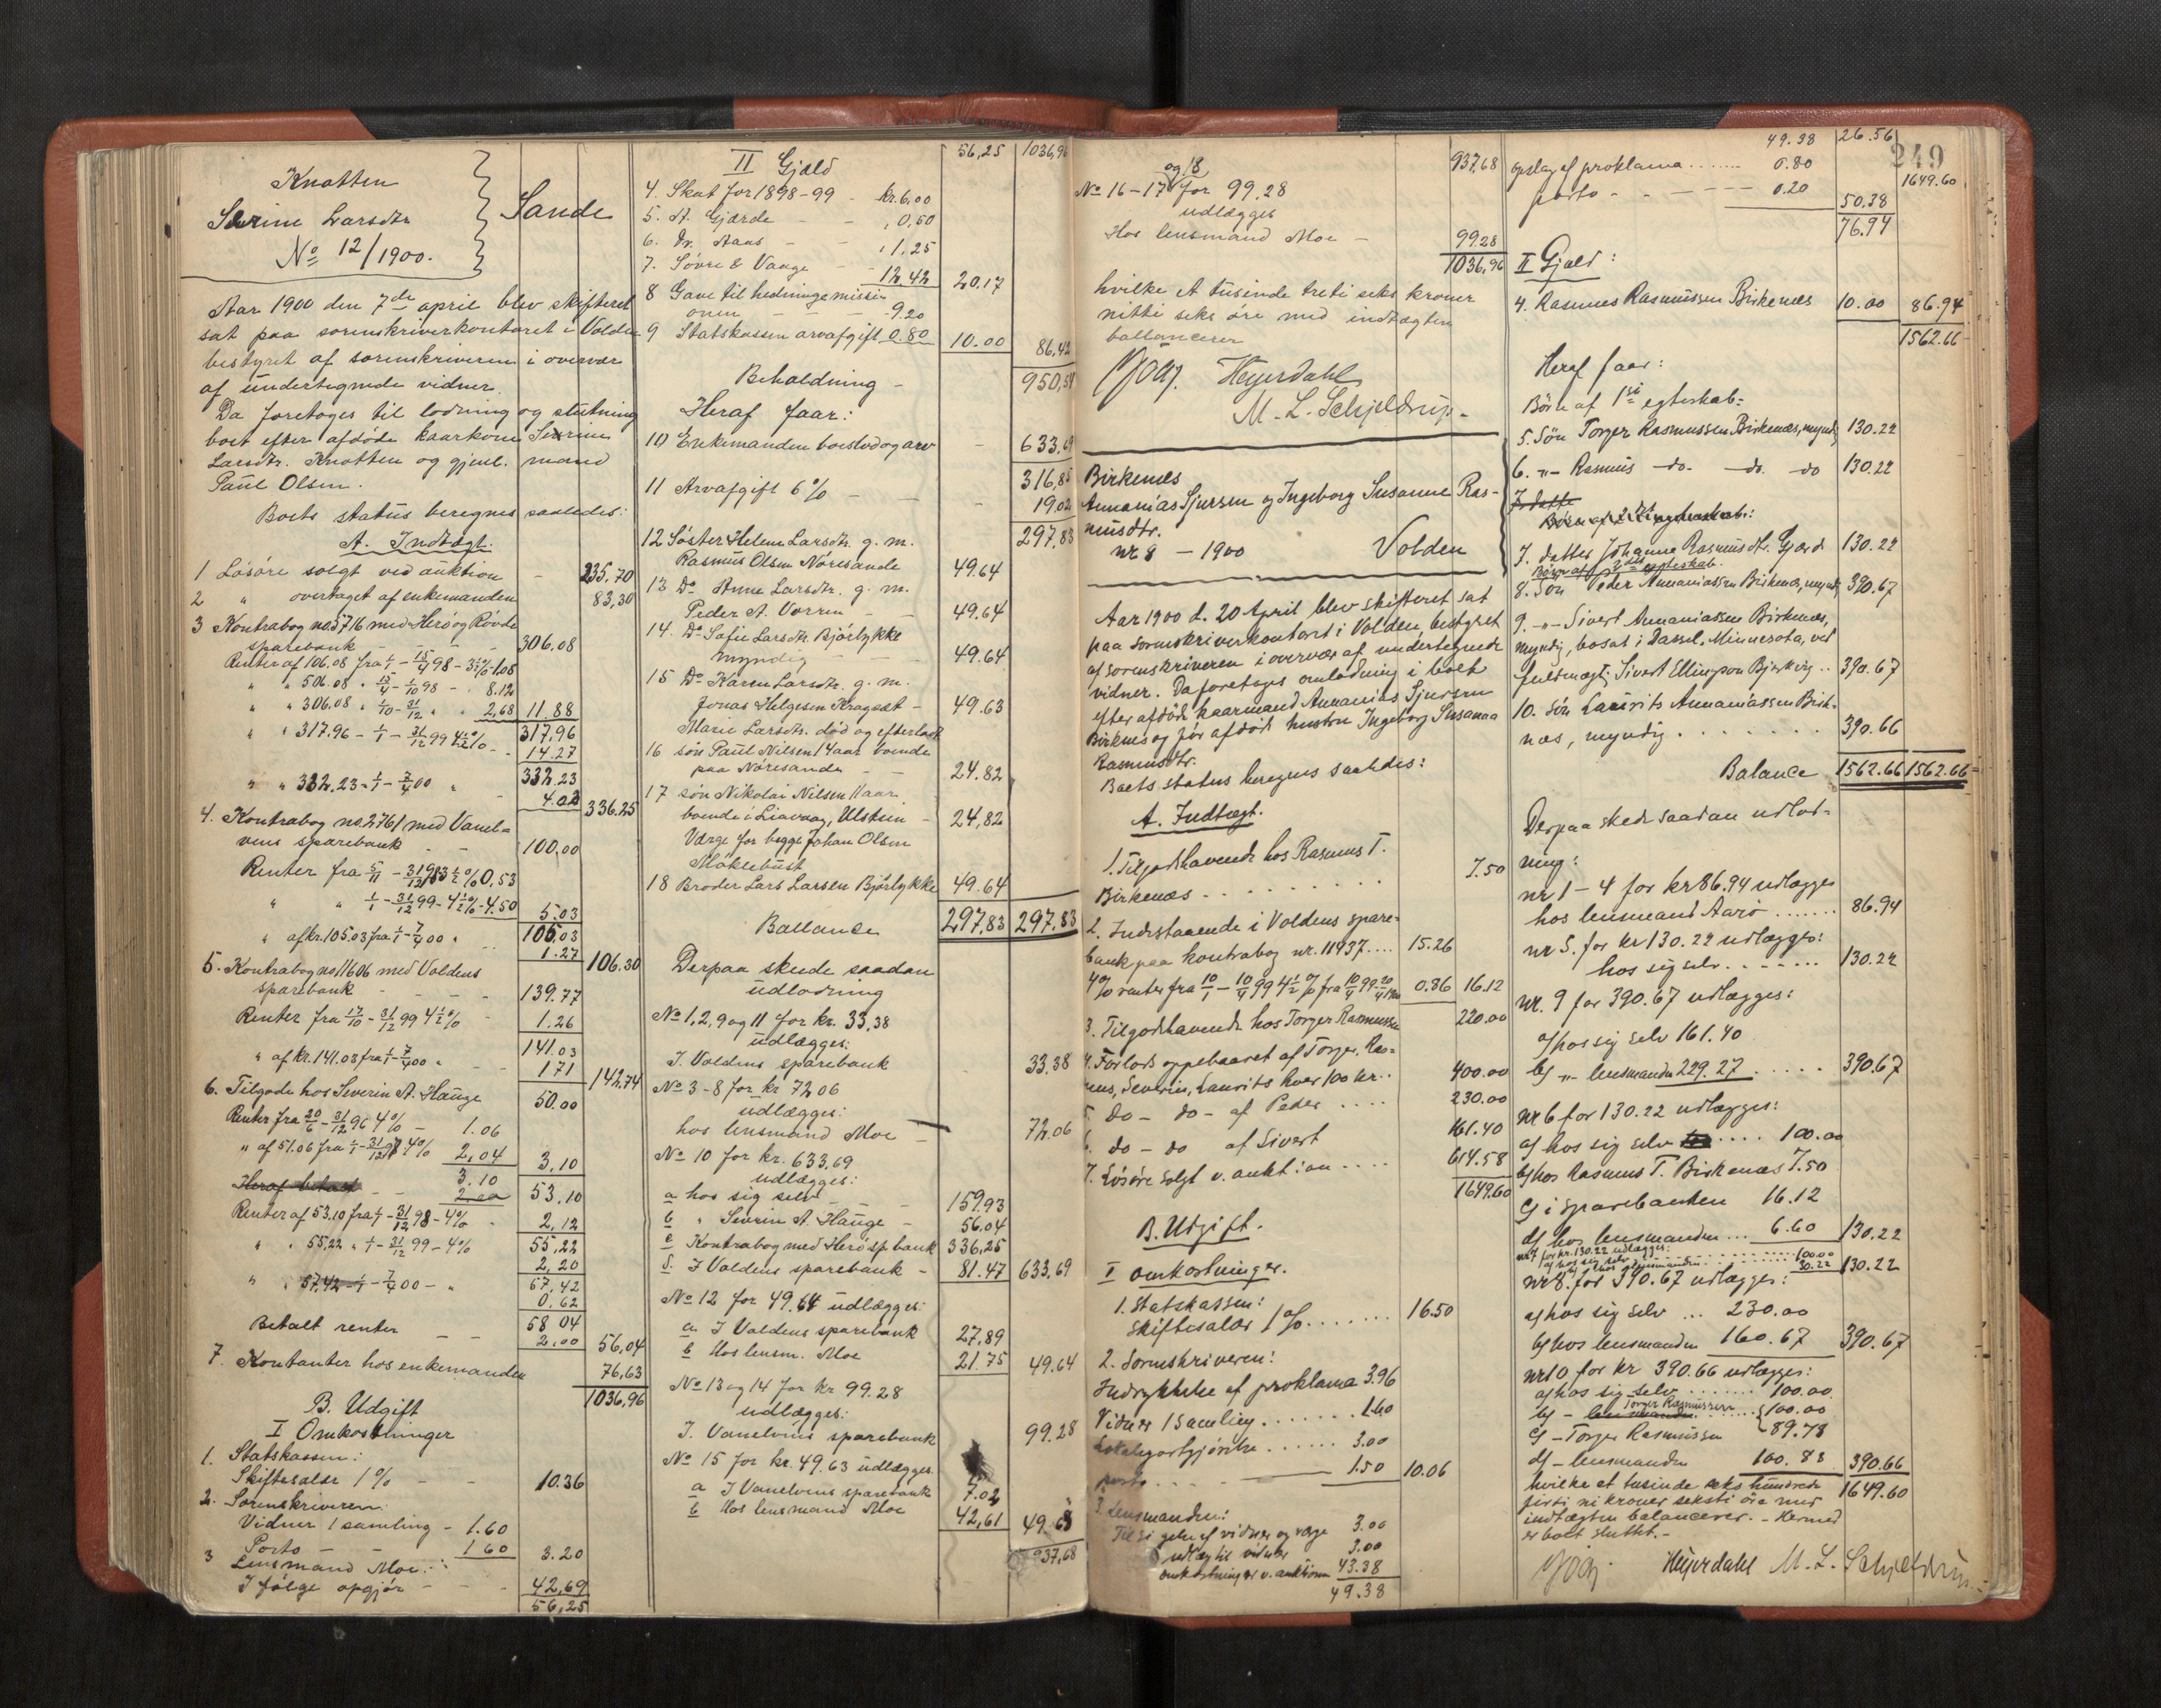 Knotten
Sevrine Larsdtr
No 12/1900.
Sande
Aar 1900 den 7de april blev skifteret
sat paa sorenskriverkontoret i Volden
bestyret af sorenskriveren i overvær
af undertegnede vidner.
Da foretoges til lodning og slutning
boet efter afdöde kaarkone Sevrine
Larsdtr. Knotten og gjenl. mand
Paul Olsen.
Boets status beregnes saaledes:
A. Indtægt.
1 Lösöre solgt ved auktion - 235,70
2 " overtaget af enkemanden 83,30
3 Kontrabog no. 5716 med Herö og Rövde
sparebank - - 306.08
Renter af 106.08 fra 1/1 - 15/4 98 - 3½% - 1.08
" " 506.08 " 15/4 - 1/10 98 - " 8.12
" " 306.08 " 1/10 - 31/12 " " 2,68 11.88
317.96
" " 317.96 - 1/1 - 31/12 99 4½% - 14.27
332.23
" " 332.23 - 1/1 - 7/4 00 " - 4.02 336.25
4. Kontrabog no. 2761 med Vanel-
vens sparebank - - 100,00
Renter fra 5/11 - 31/12 98 3½% 0,53
" " 1/1 - 31/12 99 - 4½% - 4.50 5.03
105.03
" af kr. 105.03 fra 1/1 - 7/4 00 " 1.27 106.30
5. Kontrabog no 11606 med Voldens
sparebank - - 139.77
Renter fra 17/10 - 31/12 99 4½% - 1.26
141.03
" af kr. 141.03 fra 1/1 - 7/4 00 " 1 71 142,74
6. Tilgode hos Severin A. Hauge 50.00
Renter fra 20/6 - 31/12 96 4% - 1.06
" af 51.06 fra 1/1 - 31/12 97 4% 2,04 3,10
3.10
Heraf betalt - - 2.00 53.10
Renter af 53.10 fra 1/1 - 31/12 98 - 4% 2,12
55,22
" " 55,22 " 1/1 - 31/12 99 - 4% 2,20
57,42
" " 57,42 - 1/1 - 7/4 00 - " 0,62
58 04
Betalt renter - - 2.00 56,04
7. Kontanter hos enkemanden 76,63
1036,96
B. Udgift
I Omkostninger
1. Statskassen:
Skiftesalær 1% - - 10.36
2. Sorenskriveren:
Vidner 1 samling - 1.60
Porto - - 1 60 3.20
3 Lensmand Moe:
I fölge opgjör - - - 42,69
56,25
56,25 1036,96
II Gjæld
4. Skat for 1898-99 - kr. 6,00
5. A. Gjærde - - " 0,50
6. Dr. Aaas - - " 1,25
7. Sövre & Vauge - 12.42 20.17
8 Gave til hedningemissi-
onen - - - 9.20
9 Statskassen arvafgift 0.80 10.00 86,42
Beholdning - 950,54
Heraf faar:
10 Enkemanden boeslod og arv - 633,69
316,85
11 Arvafgift 6% - - - 19,02
297,83
12 Söster Helene Larsdtr. g. m.
Rasmus Olsen Nöresande 49.64
13 Do Anne Larsdtr. g. m.
Peder A. Vorren - - 49.64
14. Do Sofie Larsdtr Bjórlykke
myndig - - - 49.64
15 Do Karen Larsdtr. g. m.
Jonas Helgesen Kragset - 49.63
Marie Larsdtr. död og efterladt
16 sön Paul Nilsen 14 aar boende
paa Nöresande - - 24.82
17 sön Nikolai Nilsen 11 aar
boende i Liavaag, Ulstein - 24,82
Værge for begge Johan Olsen
Möklebust
18 Broder Lars Larsen Bjórlykke 49.64
Ballance 297,83 297.83
Derpaa skede saadan
udlodning
No 1, 2, 9 og 11 for kr. 33,38
udlægges:
I. Voldens sparebank 33.38
No 3-8 for kr 72 06
udlægges:
hos lensmand Moe - 72.06
No 10 for kr. 633.69
udlægges:
a hos sig selv - - 159.93
b " Sevrin A. Hauge - 56.04
c Kontrabog med Herö sp. bank 336,25
d. I Voldens sparebank - 81.47 633,69
No 12 for 49.64 udlægges:
a I Voldens sparebank 27,89
b Hos lensm. Moe 21.75 49,64
No 13 og 14 for kr. 99.28
udlægges:
I. Vanelvens sparebank 99.28
No 15 for kr. 49.63 udlægges
a I Vanelvens sparebank 7.02
b Hos lensmand Moe 42,61 49.63
937,68
937,68
No 16-17 og 18 for 99.28
udlægges
Hos lensmand Moe - 99.28
1036,96
hvilke et tusinde treti seks kroner
nitti seks öre med indtægten
ballancerer
Heyerdahl
M. L. Schjeldrup.
Birkenæs
Annanias Sjursen og Ingeborg Susanne Ras-
musdtr.
nr 8 - 1900 Volden
Aar 1900 d. 20 April blev skifteret sat
paa sorenskriverkontoret i Volden, bestyret
af sorenskriveren i overvær af undertegnede
vidner. Da foretoges omlodning i boet
efter afdöde kaarmand Annanias Sjursen
Birkenes og för afdöde hustru Ingeborg Susanna
Rasmusdtr.
Boets status beregnes saaledes:
A. Indtægt.
1. Tilgodehavende hos Rasmus T.
Birkenæs . . . . . . . . . 7.50
2. Indestaaende i Voldens spare-
bank paa kontrabog nr. 11937.... 15.26
4% renter fra 10/1 - 10/4 99 4½% fra 10/4 99 - 20/4 1900 0.86 16.12
3. Tilgodehavende hos Torger Rasmussen 220.00
4. Forlods oppebaaret af Torger, Ras-
mus, Severin, Laurits hver 100 kr.. 400.00
5. do - do - af Peder .... 230.00
6. do - do af Sivert 161.40
7. Lösöre solgt v. auktion .... 614.58
1649.60
B. Udgift.
I omkostninger.
1. Statskassen:
Skiftesalær 1% ....... 16.50
2. Sorenskriveren:
Indrykkelse af proklama 3.96
Vidner 1 samling ....... 1.60
3.00
porto . . . 1.50 10.06
3. Lensmanden:
Tilsigelse af vidner og værge 3.00
udlæg til vidner 3.00
omkostninger v. auktionen 43.38
49.38
249
49.38 26.56
opslag af proklama ....... 0.80 1649.60
porto - - - - - - 0.20 50.38
76.94
II Gjæld:
4. Rasmus Rasmussen Birkenæs 10.00 86.94
1562.66
Heraf faar:
Börn af 1ste egteskab:
5. Sön Torger Rasmussen Birkenæs, myndig 130.22
6. -"- Rasmus -do- -do- -do 130.22
7. datter
Börn af 2det egteskab:
7. datter Johanne Rasmusdtr. Gjærde 130.22
Börn af 2det egteskab.
8. Sön Peder Annaniassen Birkenæs, myndig 390.67
9. -"- Sivert Annaniassen Birkenæs,
myndig, bosat i Dassel, Minnesota, ved
fuldmægtig Sivert Ellingson Bjerkevig .. 390.67
10. Sön Laurits Annaniassen Birke-
næs, myndig . . . . . . . 390.66
Balance 1562.66 1562.66
Derpaa skede saadan udlod-
ning:
nr 1-4 for kr 86.94 udlægges
hos lensmand Aarö ....... 86.94
nr 5. for kr 130.22 udlægges:
hos sig selv ....... 130.22
nr. 9 for 390.67 udlægges:
a/ hos sig selv 161.40
b/ -"- lensmanden 229.27 ..... 390.67
nr 6 for 130.22 udlægges:
a/ hos sig selv .... 100.00
b/ hos Rasmus T. Birkenæs 7.50
c/ i sparebanken 16.12
d/ hos lensmanden ... 6.60 130.22
nr 7 for kr. 130.22 udlægges:
a/ hos sig selv 100.00
b/ hos lensmanden 30.22 130.22
nr 8. for 390.67 udlægges:
a/ hos sig selv ... 230.00
b/ hos lensmanden 160.67 390.67
nr 10 for kr 390.66 udlægges:
a/ hos sig selv ....... 100.00
b/ - lensmanden Torger Rasmussen 100.00
c/ - Torger Rasmussen 89.78
d/ - lensmanden 100.88 390.66
hvilke et tusinde seks hundrede 1649.60
förti ni kroner seksti öre med
indtægten balancerer. - Hermed
er boet sluttet. -
Heyerdahl M. L. Schjeldrup.